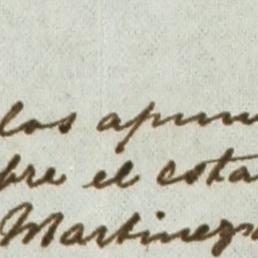 los apun
bre el esta
Martinez